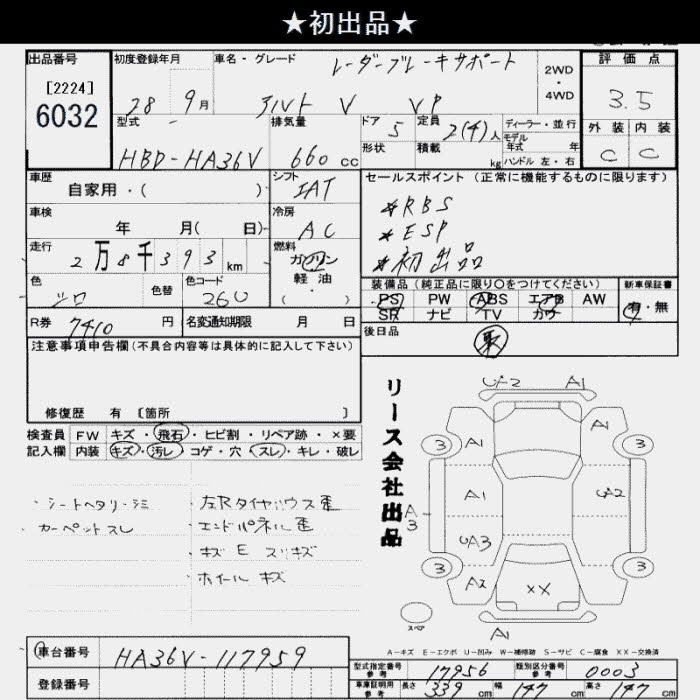 ★初出品★
出品番号
[2224]
6032
初度登録年月
28 9月
車名・グレード
レーダーブレーキサポート
アルト V VP
2WD
・
4WD
評価点
3.5
外装 内装
C C
型式
HBD-HA36V
排気量
660 cc
ドア 5
形状
定員 2(4)人
積載 kg
ディーラー・並行
モデル年式 年
ハンドル 左・右
車歴
自家用・( )
シフト
IAT
車検
年 月( 日)
冷房
AC
走行
2万8千393km
燃料
ガソリン
軽油
( ・ )
色
シロ
色替
色コード
26U
R券 7410 円
名変通知期限 月 日
セールスポイント(正常に機能するものに限ります)
*RBS
*ESP
*初出品
装備品(純正品に限り○をつけてください)
PS PW ABS エアB AW
SR ナビ TV カワ
新車保証書
有・無
後日品
取
注意事項申告欄(不具合内容等は具体的に記入して下さい)
修復歴 有 [箇所 ]
検査員 FW キズ・飛石・ヒビ割・リペア跡・×要
記入欄 内装 キズ・汚レ・コゲ・穴・スレ・キレ・破レ
・シートヘタリ・シミ
カーペットスレ
・左Rタイヤハウス歪
・エンドパネル歪
・キズ E スリキズ
・ホイール キズ
リース会社出品
UA2 A1
3 A1 A1 3
A1 UA2
A3
UA3
3 A2 XX 3
スペア
A1
A-キズ E-エクボ U-凹み W-補修跡 S-サビ C-腐食 XX-交換済
車台番号 HA36V-117959
登録番号
型式指定番号 参考 17956
類別区分番号 参考 0003
車庫証明用 参考 長さ 339 cm 幅 147 cm 高さ 147 cm